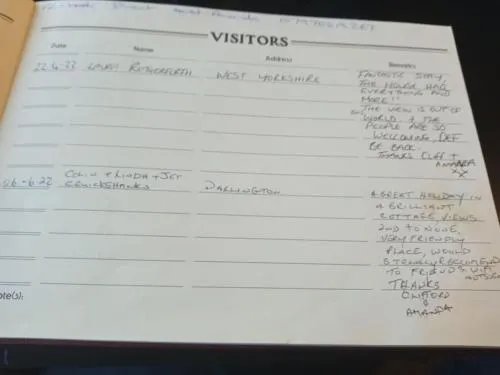 VISITORS
Date Name Address Remarks
22.6.23 LAURA RUTHERFORTH WEST YORKSHIRE FANTASTIC STAY,
THE HOUSE HAD
EVERYTHING AND
MORE!!
THE VIEW IS OUT OF
WORLD & THE
PEOPLE ARE SO
WELCOMING, DEF
BE BACK.
THANKS CLIFF +
AMANDA
XX
COLIN + LINDA + JET
26-6-22 CRUICKSHANKS DARLINGTON A GREAT HOLIDAY IN
A BRILLIANT
COTTAGE, VIEWS
2ND TO NONE,
VERY FRIENDLY
PLACE, WOULD
STRONGLY RECOMEND
TO FRIENDS. WIFI
THANKS
CLIFFORD
&
AMANDA
ote(s):